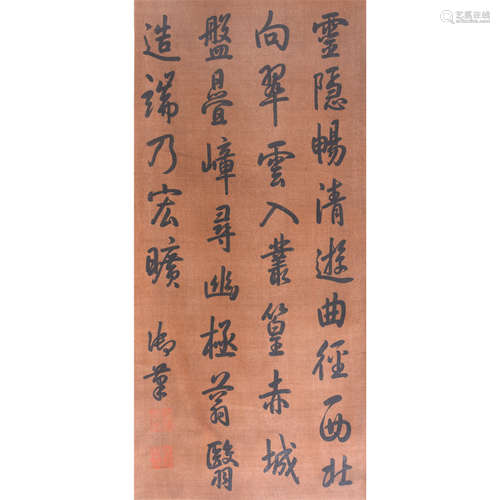 靈隱暢清遊曲徑西北
向翠雲入叢篁赤城
盤疊嶂尋幽極蓊翳
造端乃宏曠 御筆